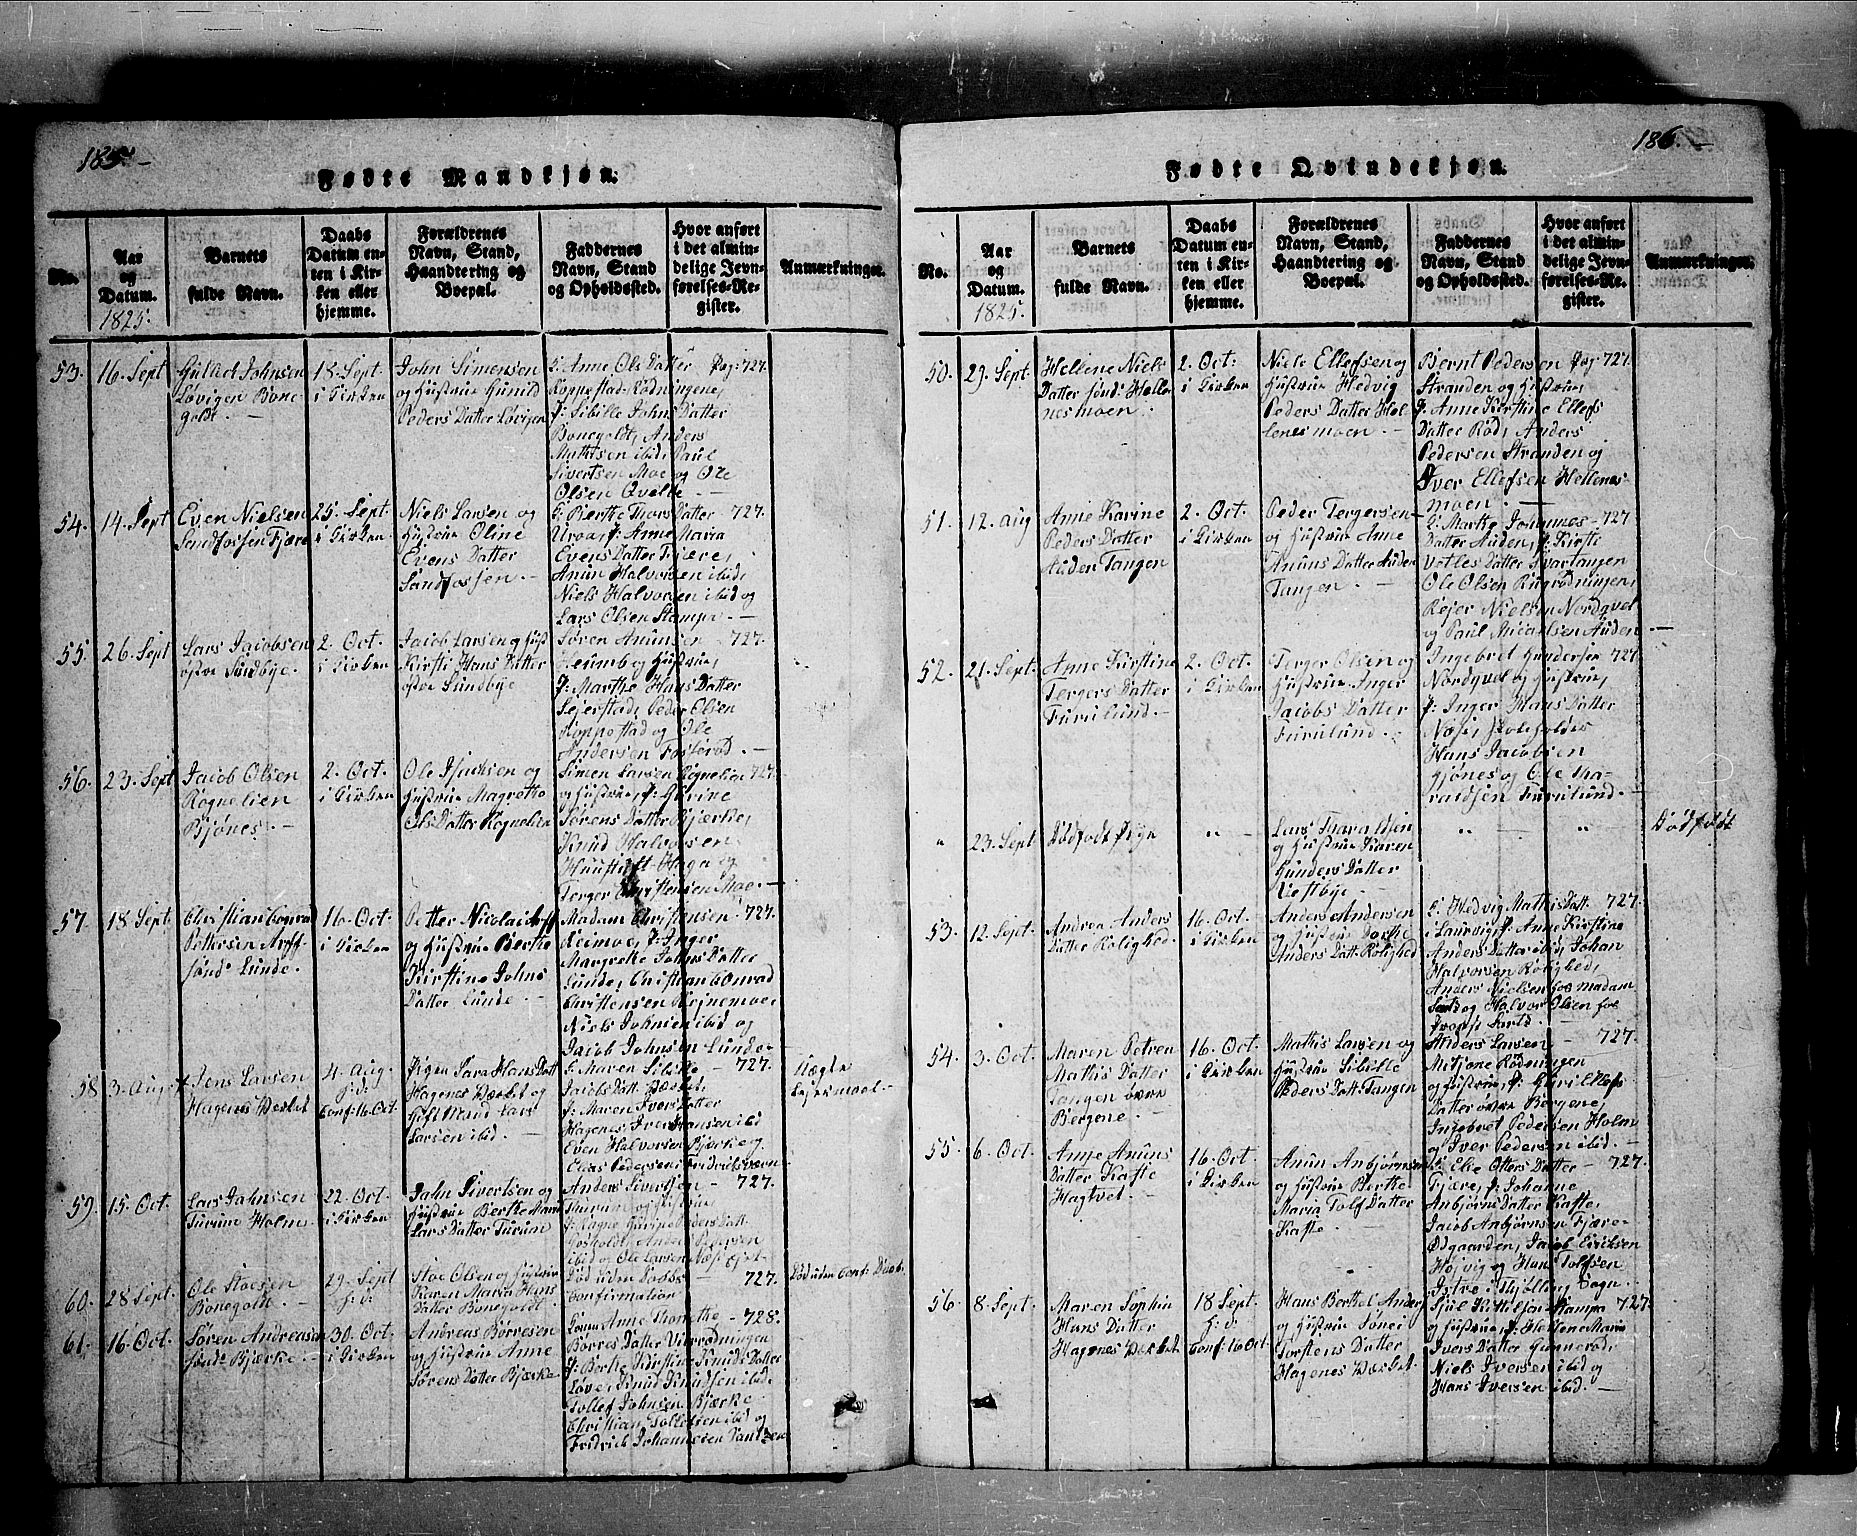 185.
Fødte Mandkjøn.
No.
Aar
og
Datum.
1825.
Barnets
fulde Navn.
Daabs
Datum en-
ten i Kir-
ken eller
hjemme.
Forældrenes
Navn, Stand,
Haandtering og
Boepæl.
Faddernes
Navn, Stand
og Opholdssted.
Hvor anført
i det almin-
delige Jevn-
førelses-Re-
gister.
Anmærkninger.
53.
16. Sept
Johnsen
Løvigen Bone
goldt. —
18. Sept.
i Kirken
John Simensen
og Hustrue Gunild
Peders Datter Løvigen
Anne Ols Datter
Koppestad-Rødningene,
J: Sibille Johns Datter
Bonegoldt, Anders
Mathisen ibid, Paul
Sivertsen Moe og Ole
Olsen Qvelde. —
Pag: 727.
54.
14. Sept
Even Nielsen
Sandfossen Fjære
25. Sept.
i Kirken
Niels Larsen og
Hustrue Oline
Evens Datter
Sandfossen. —
Berthe Thors Datter
J: Anne Maria
Evens Datter Fjære,
Anun Halvorsen ibid,
Niels Halvorsen ibid og
Lars Olsen Stampe. —
727.
55.
26. Sept
Lars Jacobsen
østre Sundbye.
2. Oct.
i Kirken
Jacob Larsen og Hust
Kirsti Hans Datter
østre Sundbye
Søren Anunsen
og Hustrue,
J: Marthe Hans Datter
Sejerstad, Peder Olsen
Koppestad og Ole
Andersen
727.
56.
23. Sept
Jacob Olsen
Rognelien
Bjønes. —
2. Oct.
i Kirken
Ole
Hustrue Magrethe
Ols Datter Rognelien
Simen Larsen Rognelien
og Hustrue, J:
Sørens Datter Bjerke,
Knud Halvorsen
Haga og
Terger Christensen Moe. —
727.
57.
18. Sept.
Christian Conrad
Pettersen Arff
søndr Lunde.
16. Oct.
i Kirken
Petter Nicolai Arff
og Hustrue Berthe
Kirstine Johns
Datter Lunde. —
Madam Christensen
J: Inger
Margrethe Johns Datter
Lunde, Christian Conrad
Christensen
Niels Johnsen ibid og
Jacob Johnsen Lunde.
727.
58
3. Aug
Jens Larsen
Hagenes Værket
4. Aug.
h. d.
Conf: 16. Oct.
Pigen Sara Hans Datt
Hagenes Værket og
Gift Mand Lars
Larsen ibid. —
Maren Sibille
Jacobs Datt: Værket,
J: Maren Ivers Datter
Hagenes, Iver Hansen ibid
Even Halvorsen Bjerke og
Elias Pedersen Fridriksvern
727.
Uægte
Lejermaal. —
59.
15. Oct.
Lars Johnsen
Turum Holm
22. Oct
i Kirken
John Sivertsen og
Hustrue Berthe Maria
Lars Datter Turum
Anders Sivertsen
Thurum og Hustrue
J: Ragne Peders Datt
ibid og Ole Larsen
727.
60.
28 Sept.
Ole Stoesen
Bonegoldt. —
29. Sept
h. d.
Stoe Olsen og Hustrue
Karen Maria Hans
Datter Bonegoldt.
Død uden Daabs
Confirmation
727.
Død uden Conf: Daab.
61.
16. Oct.
Søren Andreasen
søndr Bjerke. —
30. Oct.
i Kirken
Andreas Børresen
og Hustrue Anne
Sørens Datter Bjerke.
Anne Thorethe
Børres Datter Vibrødningen
J: Berthe Kirstine Knuds Datter
Løve, Knud Knudsen ibid,
Tollef Johnsen Bjerke
Christian Tollefsen ibid og
Fridrich Johannesen
728.
186.
Fødte Qvindekjøn.
No.
Aar
og
Datum.
1825.
Barnets
fulde Navn.
Daabs
Datum en-
ten i Kir-
ken eller
hjemme.
Forældrenes
Navn, Stand,
Haandtering og
Boepæl.
Faddernes
Navn, Stand
og Opholdssted.
Hvor anført
i det almin-
delige Jevn-
førelses-Re-
gister.
Anmærkninger.
50.
29. Sept.
Hellene Niels
Datter sønd: Helle
nesmoen.
2. Oct:
i Kirken
Niels Ellefsen og
Hustrue Hedvig
Peders Datter Hel
lenes moen. —
Bernt Pedersen
Stranden og Hustrue,
J: Anne Kirstine Ellefs
Datter Rød, Anders
Pedersen Stranden og
Iver Ellefsen Hellenes
moen. —
Pag: 727.
51.
12. Aug
Anne Karine
Peders Datter
Auden Tangen
2. Oct.
i Kirken
Peder Tergersen
og Hustrue Anne
Anuns Datter Auden
Tangen. —
Marthe Johannes
Datter Auden, J: Kirste
Datter Svartangen
Ole Olsen
Rejer Nielsen Nordqvel
og Paul Micaelsen Auden
727
52.
21. Sept.
Anne Kirstine
Tergers Datter
Furulund. —
2. Oct.
i Kirken
Terger Olsen og
Hustrue Inger
Jacobs Datter
Furulund. —
Ingebret Gundersen
Nordqvel og Hustrue,
J: Inger Hans Datter
Hans Jacobsen
Gjønes og Ole Tha-
raldsen Furulund. —
727.
"
23. Sept
Dødfødt Pige
" —
Lars Tharaldsen
og Hustrue Karen
Gunders Datter
Vestbye. —
"
"
Dødfødt
53.
12. Sept.
Andrea Anders
Datter Rolighed.
16. Oct.
i Kirken
Anders Andersen
og Hustrue Dorthe
Anders Datt: Rolighed
Hedvig Mathis Datt.
i Laurvig, J: Anne Kirstine
Anders Datter ibid, Johan
Halvorsen Rolighed,
Anders Nielsen for madam
og Halvor Olsen for
727.
54.
3. Oct.
Maren Petrea
Mathis Datter
Tangen øvre
Bergene.
16. Oct.
i Kirken
Mathis Larsen og
Hustrue Sibille
Peders Datt: Tangen
Anders Larsen
Rødningen
og Hustrue, J: Ellefs
Datter øvre Bergene,
Ingebret Pedersen Holm
og Iver Pedersen ibid.
727.
55.
6. Oct.
Anne Anuns
Datter Kaste
Hagtvet.
16 Oct.
i Kirken
Anun Anbjørnsen
og Hustrue Berthe
Maria Tolf Datter
Kaste. —
Elie Otters Datter
Fjære, J: Johanne
Anbjørns Datter Kaste,
Jacob Anbjørnsen Fjære-
Ødgaarden, Jacob Eriksen
Højvig og Hans Tolfsen
Istre i Hjølling Sogn.
727.
56.
8. Sept.
Maren Sophia
Hans Datter
Hagenes Værket
18 Sept.
h. d.
Conf: 16 Oct.
Hans Berthel Anders
og Hustrue
Torstens Datter
Hagenes Værket.
Kittilsen Stampa
og Hustrue, J: Hellene Maria
Ivers Datter Gunnerød,
Niels Iversen ibid og
Hans Iversen ibid. —
727.